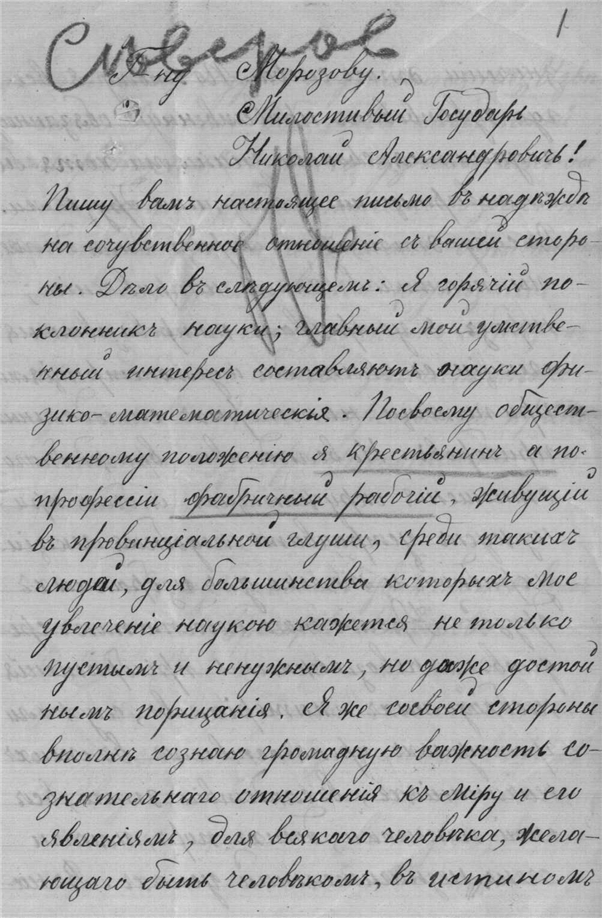 1
Г-ну Морозову.
Милостивый Государь
Николай Александровичъ!
Пишу вамъ настоящее письмо въ надеждѣ
на сочувственное отношеніе съ вашей сторо-
ны. Дѣло въ слѣдующемъ: Я горячій по-
клонникъ науки; главный мой умстве-
нный интересъ составляютъ науки фи-
зико-математическія. Посвоему общест-
венному положенію я крестьянинъ а по-
профессіи фабричный рабочій, живущій
въ провинціальной глуши, среди такихъ
людей, для большинства которыхъ мое
увлеченіе наукою кажется не только
пустымъ и ненужнымъ, но даже достой
нымъ порицанія. Я же сосвоей стороны
вполнѣ сознаю громадную важность со-
знательнаго отношенія къ міру и его
явленіямъ, для всякаго человѣка, жела-
ющаго быть человѣкомъ, въ истиномъ